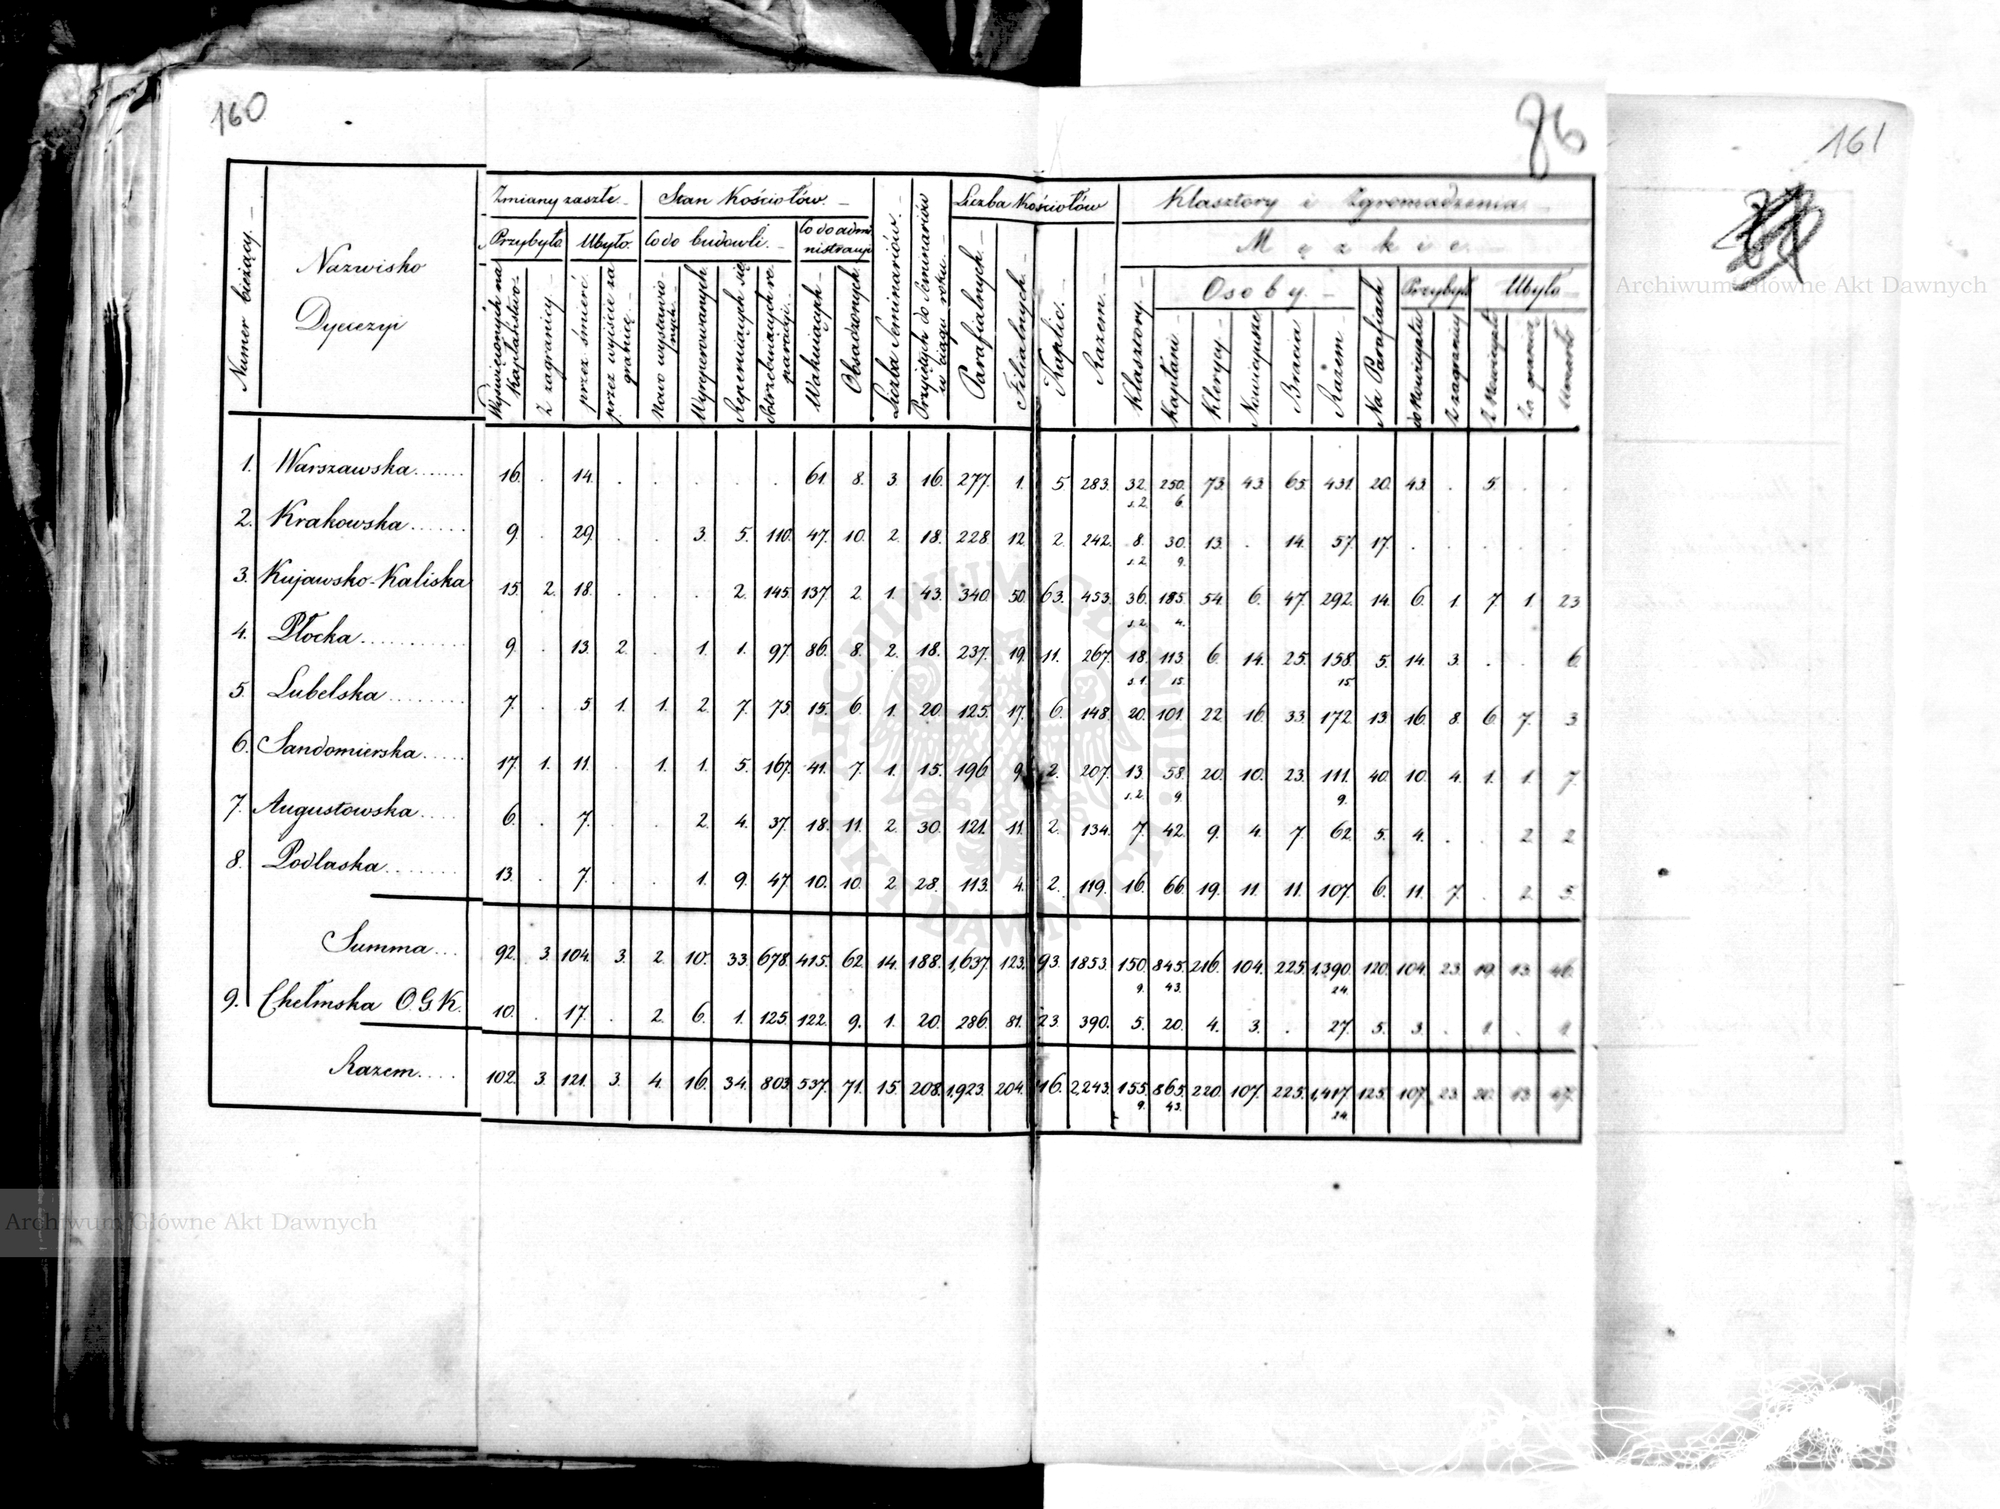 160
86
161
Numer bieżący.
Nazwisko
Dyecezyi
Zmiany zaszłe.
Stan Kościołów.
Liczba Seminariów.
Przyjętych do Seminariów w ciągu roku.
Liczba Kościołów
Klasztory i Zgromadzenia
Przybyło
Ubyło.
Co do budowli.
Co do administracyi
Męzkie
Osoby.
Przybyło
Ubyło
Wyświęconych na Kapłaństwo.
Z zagranicy
przez śmierć
przez wyjście za granicę.
Nowo wystawionych.
Wyreperowanych
Reperujących się
Potrzebujących reparacyi.
Wakujących
Obsadzonych
Parafialnych.
Filialnych.
Kaplic.
Razem.
Klasztory.
Kapłani
Klerycy.
Nowicyusze
Bracia
Razem
Na Parafiach
do Nowicyatu
Z zagranicy
Z Nowicyatu
Za granicę
Umarło
1. Warszawska 16. . 14. . . . . . 61. 8. 3. 16. 277. 1. 5. 283. 32. 250. 73. 43. 65. 431. 20. 43. . 5. . .
s.2. 6.
2. Krakowska 9. . 29. . . 3. 5. 110. 47. 10. 2. 18. 228 12. 2. 242. 8. 30. 13. . 14. 57. 17. . . . . .
s.2. 9.
3. Kujawsko-Kaliska 15. 2. 18. . . . 2. 145. 137 2. 1. 43. 340. 50. 63. 453. 36. 185. 54. 6. 47. 292. 14. 6. 1. 7. 1. 23
s.2. 4.
4. Płocka 9. . 13. 2. . 1. 1. 97. 86. 8. 2. 18. 237. 19. 11. 267. 18. 113. 6. 14. 25. 158. 5. 14. 3. . . 6.
s.1. 15. 15.
5. Lubelska 7. . 5. 1. 1. 2. 7. 75. 15. 6. 1. 20. 125. 17. 6. 148. 20. 101. 22. 16. 33. 172. 13 16. 8. 6. 7. 3
6. Sandomierska 17. 1. 11. . 1. 1. 5. 167. 41. 7. 1. 15. 196 9. 2. 207. 13. 58. 20. 10. 23. 111. 40. 10. 4. 1. 1. 7.
s.2. 9. 9.
7. Augustowska 6. . 7. . . 2. 4. 37. 18. 11. 2. 30. 121. 11. 2. 134. 7. 42. 9. 4. 7. 62. 5. 4. . . 2. 2
8. Podlaska 13. . 7. . . 1. 9. 47. 10. 10. 2. 28. 113. 4. 2. 119. 16. 66. 19. 11. 11. 107. 6. 11. 7. . 2. 5.
Summa 92. 3. 104. 3. 2. 10. 33. 678. 415. 62. 14. 188. 1,637. 123. 93. 1853. 150. 845. 216. 104. 225. 1,390. 120. 104. 23. 19. 13. 46.
9. 43. 24.
9. Chełmska O.G.K. 10. . 17. . 2. 6. 1. 125. 122. 9. 1. 20. 286. 81. 23. 390. 5. 20. 4. 3. . 27. 5. 3. . 1. . 1
Razem 102. 3. 121. 3. 4. 16. 34. 803. 537. 71. 15. 208. 1,923. 204. 16. 2,243. 155. 865. 220. 107. 225. 1,417. 125. 107. 23. 20. 13. 47.
9. 43. 24.
ARCHIWUM GŁÓWNE AKT DAWNYCH
Archiwum Główne Akt Dawnych
Archiwum Główne Akt Dawnych